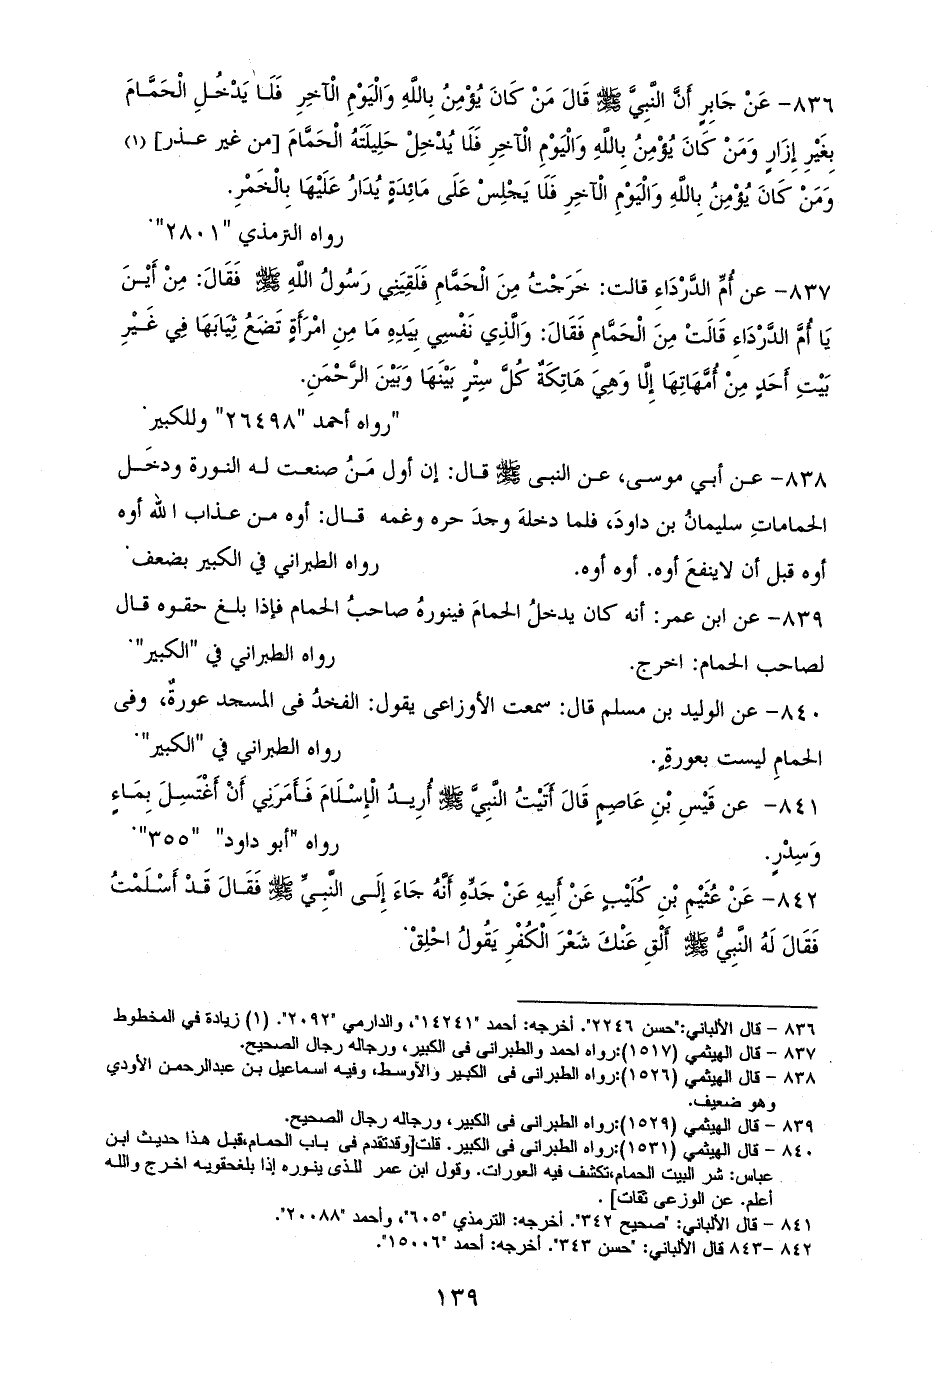 ٨٣٦- عَنْ جَابِرٍ أَنَّ النَّبِيَّ ﷺ قَالَ مَنْ كَانَ يُؤْمِنُ بِاللَّهِ وَالْيَوْمِ الْآخِرِ فَلَا يَدْخُلِ الْحَمَّامَ
بِغَيْرِ إِزَارٍ وَمَنْ كَانَ يُؤْمِنُ بِاللَّهِ وَالْيَوْمِ الْآخِرِ فَلَا يُدْخِلْ حَلِيلَتَهُ الْحَمَّامَ [من غير عـذر] (١)
وَمَنْ كَانَ يُؤْمِنُ بِاللَّهِ وَالْيَوْمِ الْآخِرِ فَلَا يَجْلِسْ عَلَى مَائِدَةٍ يُدَارُ عَلَيْهَا بِالْخَمْرِ.
رواه الترمذي "٢٨٠١".
٨٣٧- عن أُمِّ الدَّرْدَاءِ قالت: خَرَجْتُ مِنَ الْحَمَّامِ فَلَقِيَنِي رَسُولُ اللَّهِ ﷺ فَقَالَ: مِنْ أَيْـنَ
يَا أُمَّ الدَّرْدَاءِ قَالَتْ مِنَ الْحَمَّامِ فَقَالَ: وَالَّذِي نَفْسِي بِيَدِهِ مَا مِنِ امْرَأَةٍ تَضَعُ ثِيَابَهَا فِي غَـيْرِ
بَيْتِ أَحَدٍ مِنْ أُمَّهَاتِهَا إِلَّا وَهِيَ هَاتِكَةٌ كُلَّ سِتْرٍ بَيْنَهَا وَبَيْنَ الرَّحْمَنِ.
"رواه أحمد "٢٦٤٩٨" وللكبير.
٨٣٨- عـن أبـي موسـى، عـن النبـى ﷺ قـال: إن أول مَنُ صنعـت لـه النـورة ودخَـل
الحمامـاتِ سليمانُ بن داودَ، فلما دخلهَ وجدَ حره وغمه قـال: أوه مـن عـذاب الله أوه
أوه قبل أن لاينفعَ أوه. أوه أوه. رواه الطبراني في الكبير بضعف.
٨٣٩- عن ابن عمر: أنه كان يدخلُ الحمامَ فينورهُ صاحبُ الحمام فإذا بلـغ حقـوه قـال
لصاحب الحمام: اخرج. رواه الطبراني في "الكبير".
٨٤٠- عن الوليد بن مسلم قال: سمعت الأوزاعى يقول: الفخذُ فى المسجد عورةٌ، وفى
الحمامِ ليست بعورةٍ. رواه الطبراني في "الكبير".
٨٤١- عن قَيْسِ بْنِ عَاصِمٍ قَالَ أَتَيْتُ النَّبِيَّ ﷺ أُرِيـدُ الْإِسْـلَامَ فَـأَمَرَنِي أَنْ أَغْتَسِلَ بِمَـاءٍ
وَسِدْرٍ. رواه "أبو داود" "٣٥٥".
٨٤٢- عَنْ عُثَيْمِ بْنِ كُلَيْبٍ عَنْ أَبِيهِ عَنْ جَدِّهِ أَنَّهُ جَاءَ إِلَـى النَّبِـيِّ ﷺ فَقَـالَ قَـدْ أَسْـلَمْتُ
فَقَالَ لَهُ النَّبِيُّ ﷺ أَلْقِ عَنْكَ شَعْرَ الْكُفْرِ يَقُولُ احْلِقْ.
٨٣٦ – قال الألباني:"حسن ٢٢٤٦". أخرجه: أحمد "١٤٢٤١"، والدارمي "٢٠٩٢". (١) زيادة في المخطوط
٨٣٧ – قال الهيثمي (١٥١٧):رواه احمد والطبرانى فى الكبير، ورجاله رجال الصحيح.
٨٣٨ – قال الهيثمي (١٥٢٦):رواه الطبرانى فى الكبير والأوسط، وفيه اسماعيل بن عبدالرحمن الأودي
وهو ضعيف.
٨٣٩ – قال الهيثمي (١٥٢٩):رواه الطبرانى فى الكبير، ورجاله رجال الصحيح.
٨٤٠ – قال الهيثمي (١٥٣١):رواه الطبرانى فى الكبير. قلت[وقدتقدم فى باب الحمام،قبل هذا حديث ابن
عباس: شر البيت الحمام،تكشف فيه العورات. وقول ابن عمر للذى ينوره إذا بلغحقويه اخرج والله
أعلم. عن الوزعى ثقات] .
٨٤١ – قال الألباني: "صحيح ٣٤٢". أخرجه: الترمذي "٦٠٥"، وأحمد "٢٠٠٨٨".
٨٤٢ –٨٤٣ قال الألباني: "حسن ٣٤٣". أخرجه: أحمد "١٥٠٠٦".
١٣٩